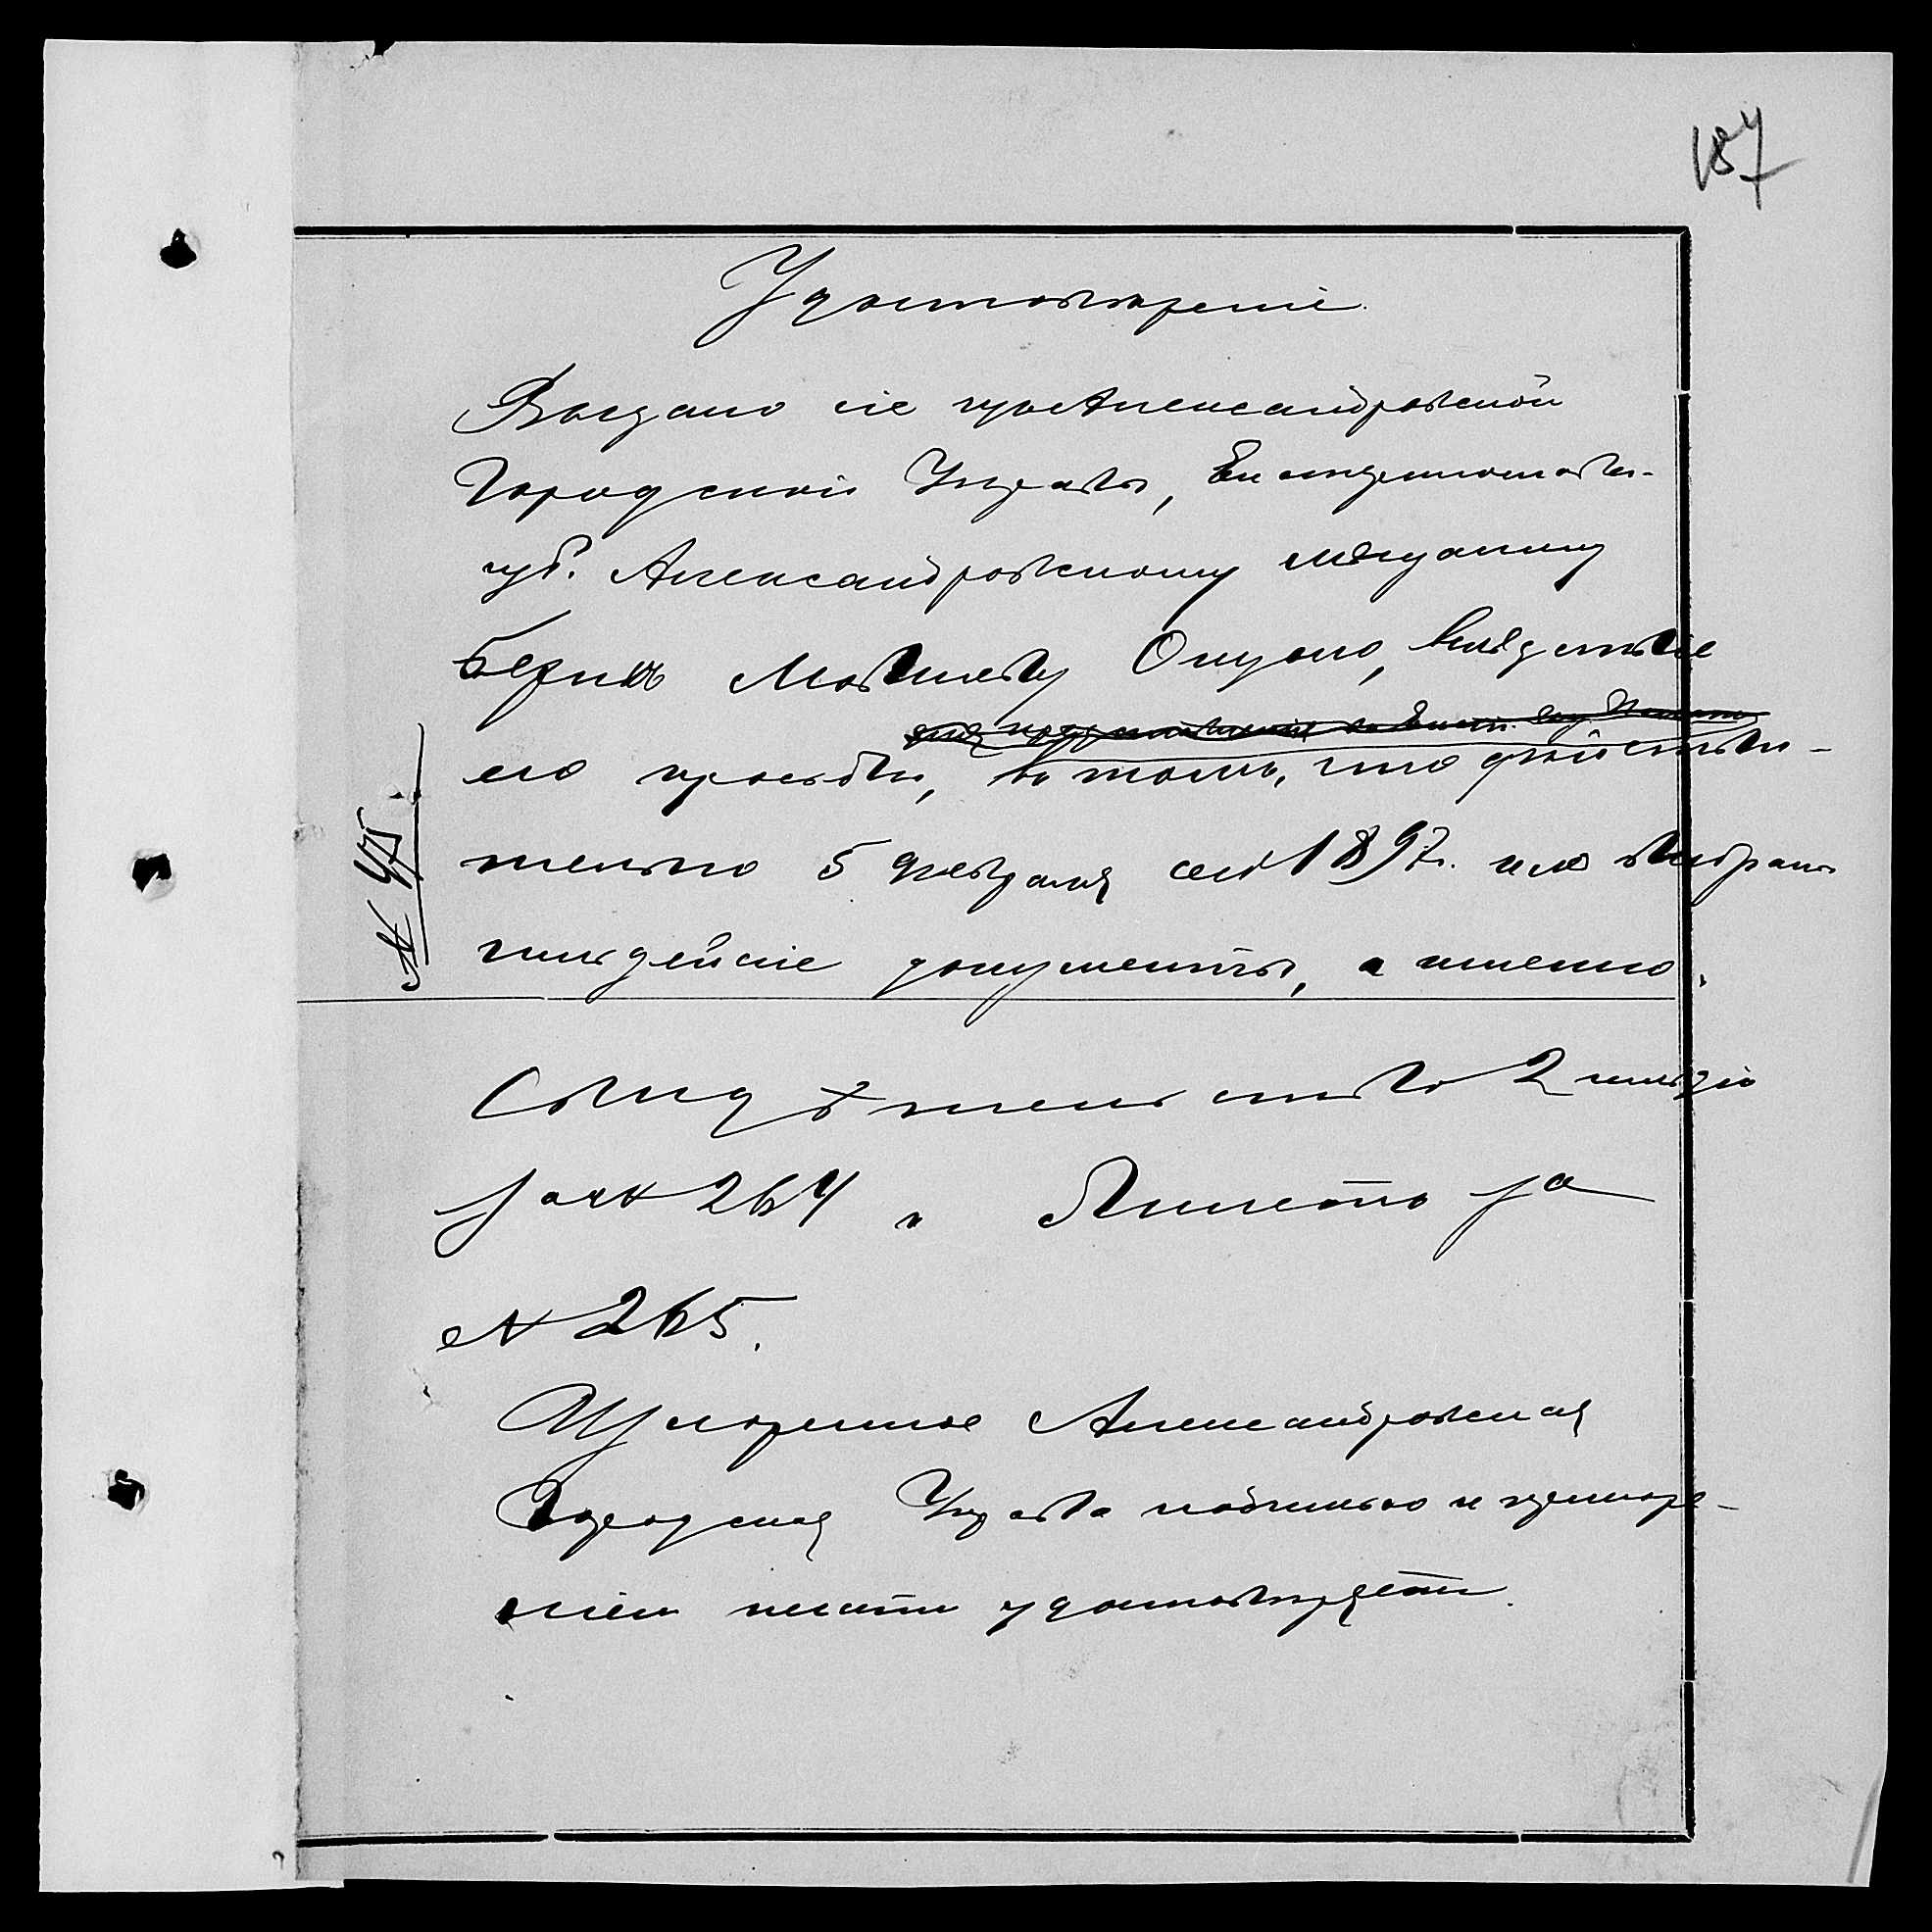 187
Удостоверенiе.
Выдано сiе изъ Александровской
Городской Управы, Екатеринославск.
губ. Александровскому мѣщанину
Берко Мовшеву Оцупо, вслѣдствiе
его просьбы, въ томъ, что дѣйстви-
тельно 5 февраля сего 1897 г. имъ выбраны
гильдейскiе документы, а именно:
№ 45.
Свидѣтельство 2 гильдiи
за № 264 и билетъ за
№ 265.
Изложенное Александровская
Городская Управа подписью и приложе-
нiем печати удостовѣряетъ.